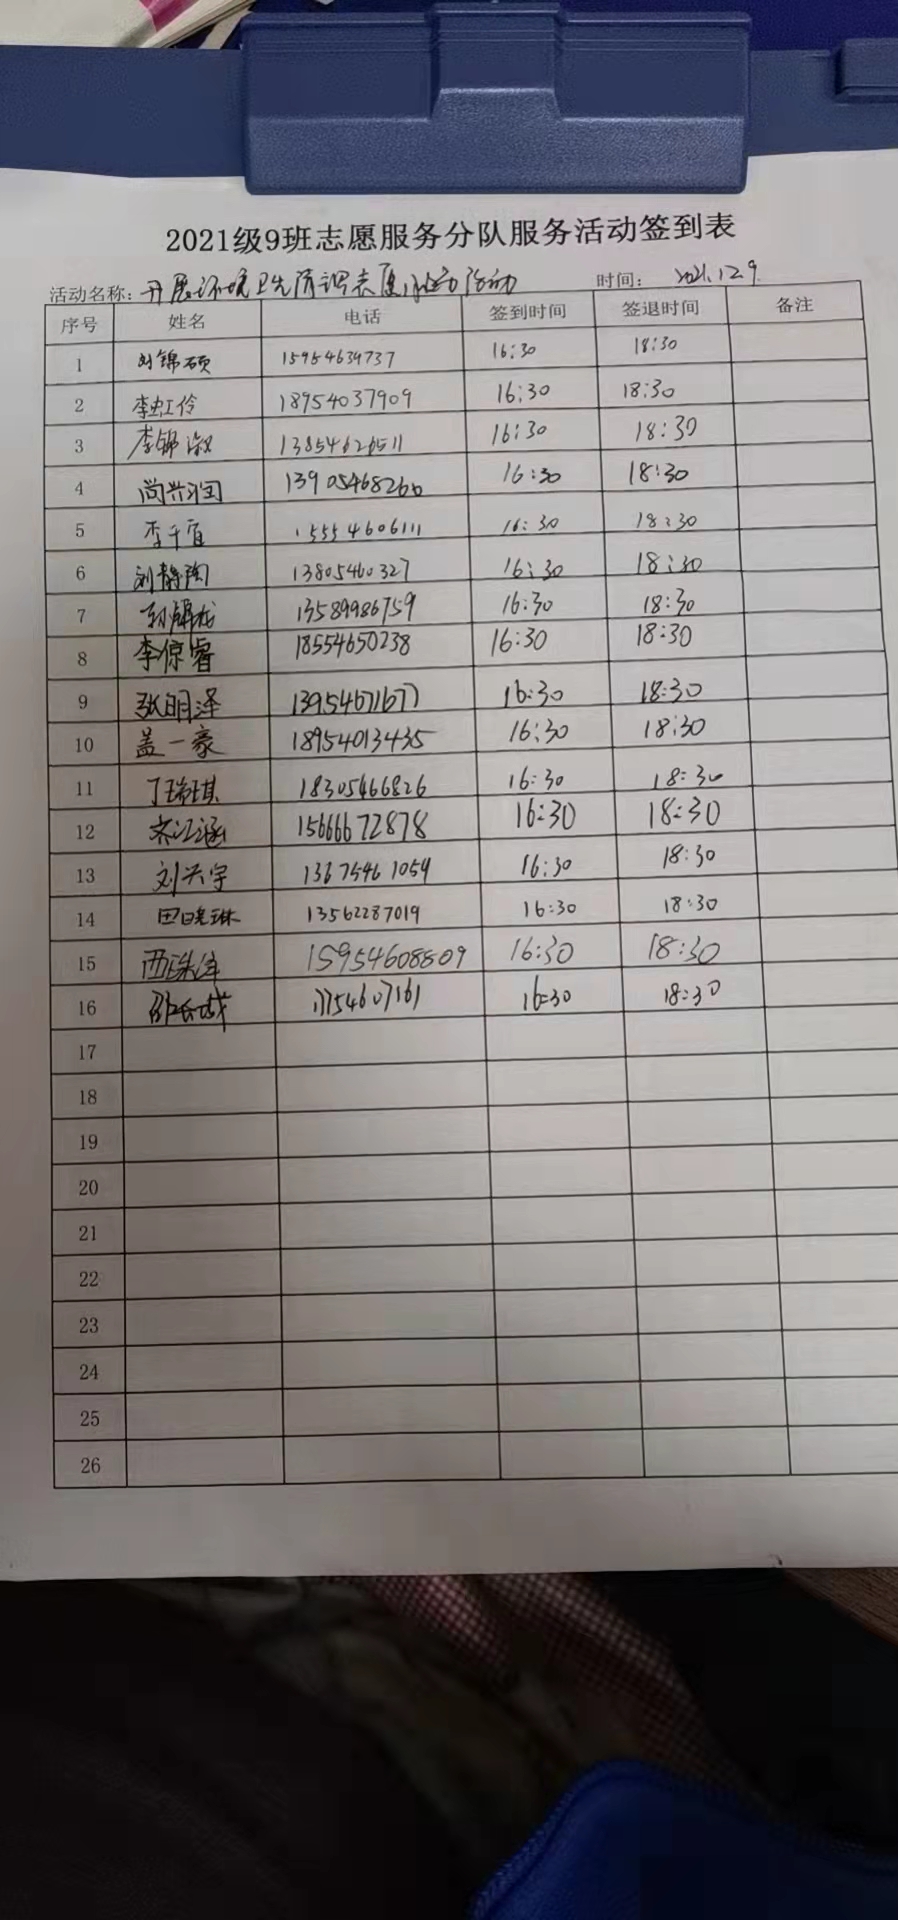 2021级9班志愿服务分队服务活动签到表
活动名称：开展环境卫生清理志愿服务活动 时间：2021.12.9
序号 姓名 电话 签到时间 签退时间 备注
1 刘锦硕 15954639737 16:30 18:30
2 李虹伶 18954037909 16:30 18:30
3 李锦淑 13854626511 16:30 18:30
4 尚兴润 13905468266 16:30 18:30
5 李千宜 15554606111 16:30 18:30
6 刘静陶 13805460327 16:30 18:30
7 13589986759 16:30 18:30
8 李倞睿 18554650238 16:30 18:30
9 张明泽 13954671677 16:30 18:30
10 盖一豪 18954013435 16:30 18:30
11 丁瑞琪 18305466826 16:30 18:30
12 15666672878 16:30 18:30
13 刘兴宇 13675461059 16:30 18:30
14 田晓琳 13562287019 16:30 18:30
15 15954608809 16:30 18:30
16 17754607161 16:30 18:30
17
18
19
20
21
22
23
24
25
26